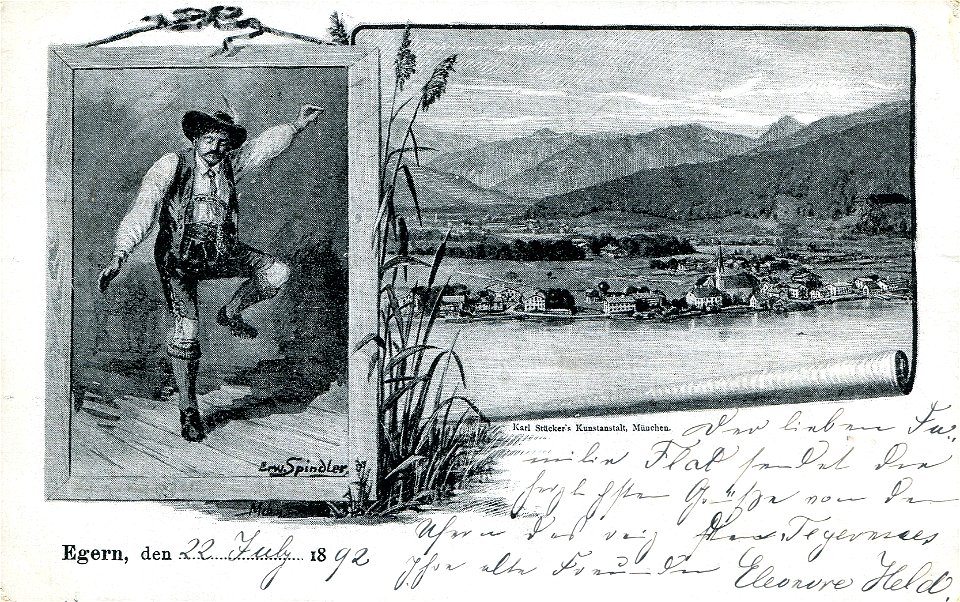 Erw. Spindler.
Karl Stücker's Kunstanstalt, München.
Der lieben Fa-
milie Flad sendet die
herzlichsten Grüße von den
Ufern des Tegernsees
Ihre alte Freundin Eleonore Held.
Egern, den 22 July 1892